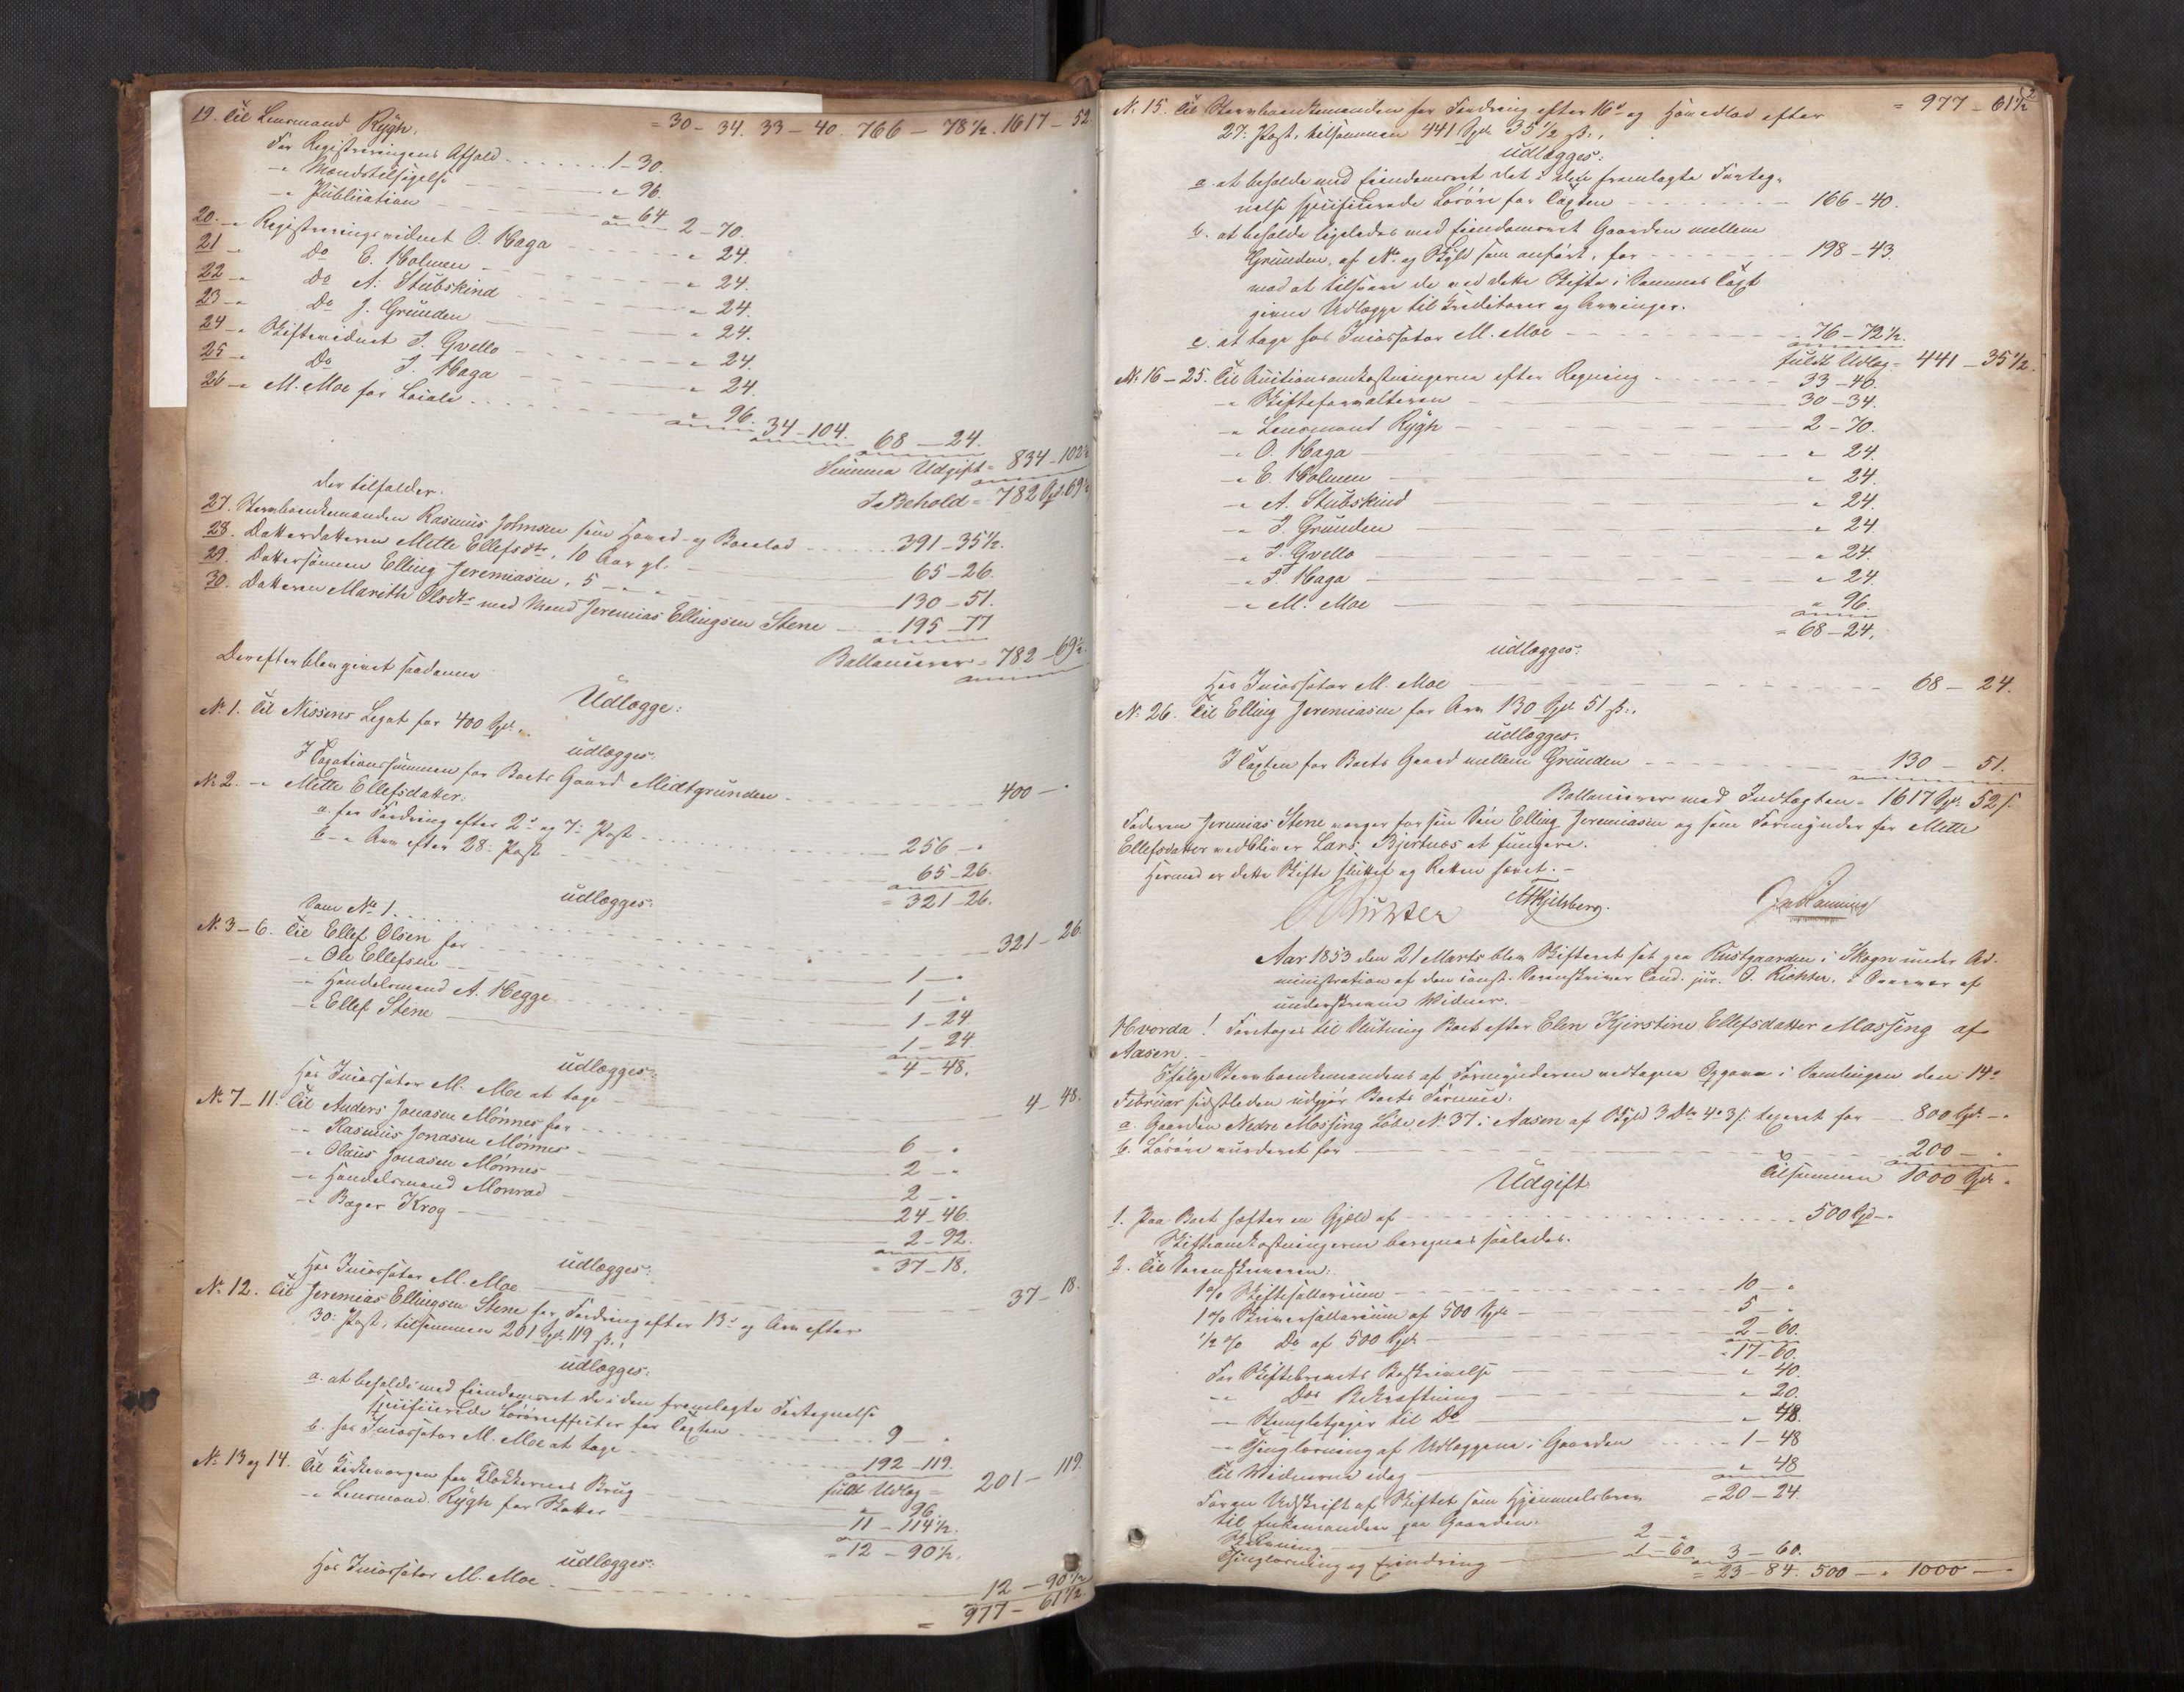 19. Til Lensmand Rygh, = 30 - 34. 33 - 40. 766 - 78½. 1617 - 52.
For Registreringens Afhold 1 - 30.
-" Mandstilsigelse " 96.
-" Publication " 64 2 - 70.
20. -" Registreringsvidnet O. Haga " 24.
21 -" Do E. Holmen " 24.
22 -" Do A. Stubskind " 24.
23 -" Do J. Grunden " 24.
24 -" Skiftevidnet I. Qvello " 24.
25 -" Do I. Haga " 24.
26 -" M. Moe for Locale " 96. 34 - 104. 68 - 24.
Summa Udgift = 834 - 102½
I Behold = 782 Spd 69½
der tilfalder:
27. Stervboenkemanden Rasmus Johnsen som Hoved- og Boeslod 391 - 35½.
28. Datterdatteren Mette Ellefsdtr, 10 Aar gl. 65 - 26.
29. Dattersønnen Elling Jeremiasen, 5 -"- " 130 - 51.
30. Datteren Marith Olsdtr med Mand Jeremias Ellingsen Stene 195 - 77
Ballancerer = 782 - 69½.
Derefter blev givet saadanne
Udlægge:
No 1. Til Nissens Legat for 400 Spd.
udlægges:
I Taxationssummen for Boets Gaard Midtgrunden 400 - "
No 2. -" Mette Ellefsdatter:
a. for Fordring efter 2den og 7de Post 256 - "
b -" Arv efter 28de Post 65 - 26.
= 321 - 26.
udlægges:
Som No 1. 321 - 26.
No 3-6. Til Ellef Olsen for 1 - "
-" Ole Ellefsen 1 - "
-" Handelsmand A. Hegge 1 - 24
-" Ellef Stene 1 - 24.
= 4 - 48.
udlægges:
Hos Incassator M. Moe at tage 4 - 48.
No 7-11. Til Anders Jonasen Mønnes for 6 - "
-" Rasmus Jonasen Mønnes 2 - "
-" Olaus Jonasen Mønnes 2 - "
-" Handelsmand Monrad 24 - 46.
-" Bager Krog 2 - 92.
= 37 - 18.
udlægges:
Hos Incassator M. Moe 37 - 18.
No 12. Til Jeremias Ellingsen Stene for Fordring efter 13de og Arv efter
30te Post, tilsammen 201 Spd. 119 s.,
udlægges:
a. at beholde med Eiendomsret de i den fremlagte Fortegnelse
specificerede Løsøreeffecter for Taxten 9 - "
b. hos Incassator M. Moe at tage 192 - 119.
fuldt Udlæg = 201 - 119.
No 13 og 14. Til Kirkeværgen for Klokkernes Brug " 96.
-" Lensmand Rygh for Skatter 11 - 114½.
= 12 - 90½.
udlægges:
Hos Incassator M. Moe 12 - 90½
= 977 - 61½.
2
No 15. Til Stervboenkemanden for Fordring efter 16de og Hovedlod efter = 977 - 61½
27de Post, tilsammen 441 Spd. 35½ s.,
udlægges:
a. at beholde med Eiendomsret det i den fremlagte Forteg-
nelse specificerede Løsøre for Taxten 166 - 40.
b. at beholde ligeledes med Eiendomsret Gaarden mellem
Grunden, af No og Skyld som anført, for 198 - 43.
mod at tilsvare de ved dette Skifte i Sammes Taxt
givne Udlægge til Creditorer og Arvinger.
c. at tage hos Incassator M. Moe 76 - 72½.
fuldt Udlæg = 441 - 35½.
No 16-25. Til Auctionsomkostningerne efter Regning 33 - 40.
-" Skifteforvalteren 30 - 34.
-" Lensmand Rygh 2 - 70.
-" O. Haga " 24.
-" E. Holmen " 24.
-" A. Stubskind " 24.
-" I. Grunden " 24.
-" I. Qvello " 24.
-" I. Haga " 24.
-" M. Moe " 96.
= 68 - 24.
udlægges:
Hos Incassator M. Moe 68 - 24.
No 26. Til Elling Jeremiasen for Arv 130 Spd. 51 s.,
udlægges:
I Taxten for Boets Gaard mellem Grunden 130 - 51.
Ballancerer med Indtægten = 1617 Spd. 52 s.
Faderen Jeremias Stene værger for sin Søn Elling Jeremiasen og som Formynder for Mette
Ellefsdatter vedbliver Lars Bjertnæs at fungere.
Hermed er dette Skifte sluttet og Retten hævet. -
O Richter
Aar 1853 den 21 Marts blev Skifteret sat paa Rustgaarden i Skogn under Ad-
ministration af den const. Sorenskriver Cand. jur. O. Richter, i Overvær af
underskrevne Vidner. -
Hvorda! Foretages til Slutning Boet efter Elen Kjerstine Ellefsdatter Mossing af
Aasen. -
Ifølge Stervboenkemandens af Formynderen vedtagne Opgave i Samlingen den 14de
Februar sidstleden udgjør Boets Formue:
a. Gaarden Nedre Mossing Løbe No 37 i Aasen af Skyld 3 Dlr 4 " 3 s. taxeret for 800 Spd. - "
b. Løsøre vurderet for 200 - "
Tilsammen 1000 Spd. "
Udgift
1. Paa Boet hefter en Gjæld af 500 Spd - "
Skifteomkostningerne beregnes saaledes:
2. Til Sorenskriveren:
1% Skiftesallarium 10 - "
1% Skriversallarium af 500 Spd. 5 - "
½ % Do af 500 Spd. 2 - 60.
= 17 - 60.
For Skiftebrevets Beskrivelse " 40.
-" Dos Bekræftning " 20.
-" Stemplet papir til Do " 48.
-" Tinglæsning af Udlæggene i Gaarden 1 - 48
Til Vidnerne idag " 48
= 20 - 24.
For en Udskrift af Skiftet som Hjemmelsbrev
til Enkemanden paa Gaarden.
Skrivning 2 - "
Tinglæsning og Erindring 1 - 60. 3 - 60.
= 23 - 84. 500 - " 1000 - "